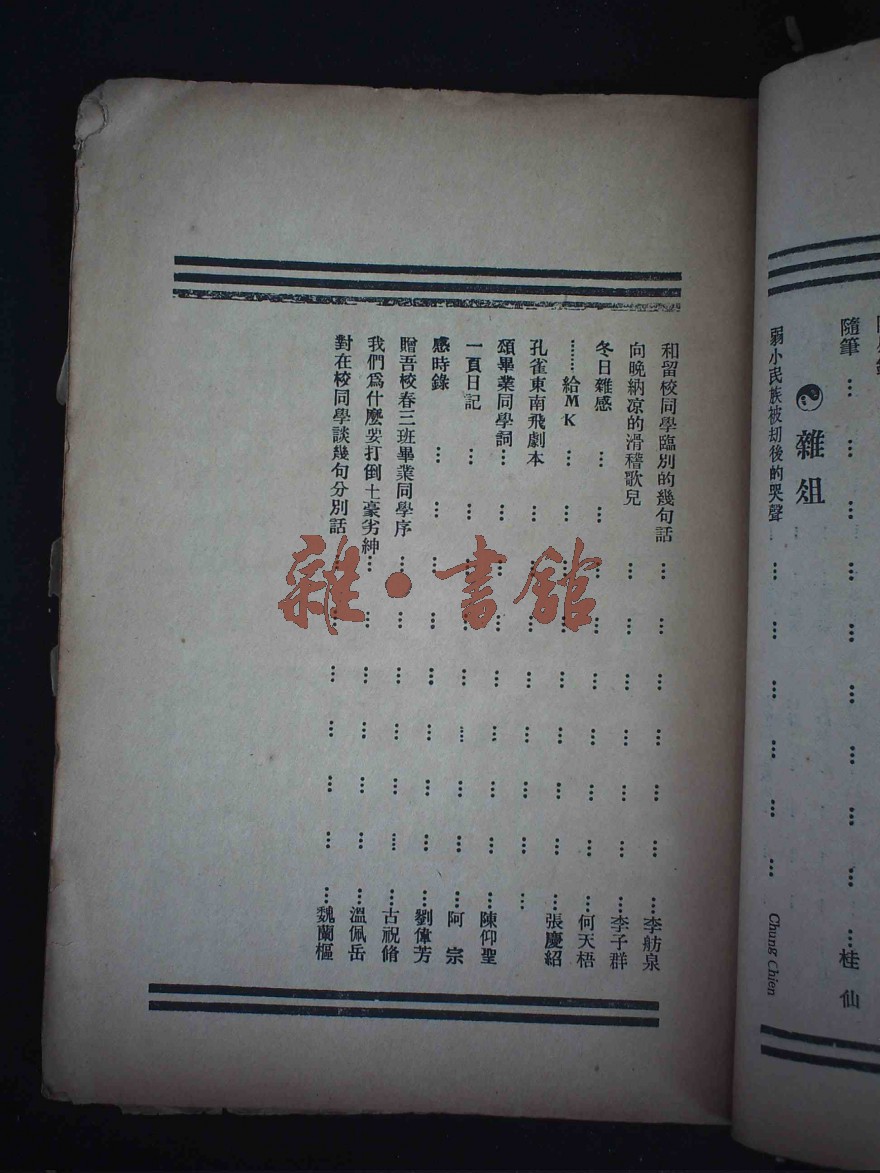 隨筆 … … … … … … … … … …桂仙
雜俎
弱小民族被刧後的哭聲 … … … … … … … Chung Chien
和留校同學臨別的幾句話 … … … … … … …李舫泉
向晚納凉的滑稽歌兒 … … … … … … …李子群
冬日雜感 … … … … … … … … …何天梧
………給MK … … … … … … … … …張慶紹
孔雀東南飛劇本 … … … … … … … …
頌畢業同學詞… … … … … … … … …陳仰聖
一頁日記 … … … … … … … … …阿宗
感時錄 … … … … … … … … …劉偉芳
贈吾校春三班畢業同學序… … … … … … …古祝脩
我們爲什麽要打倒土豪劣紳… … … … … … …溫佩岳
對在校同學談幾句分別話… … … … … … …魏蘭樞
雜·書館